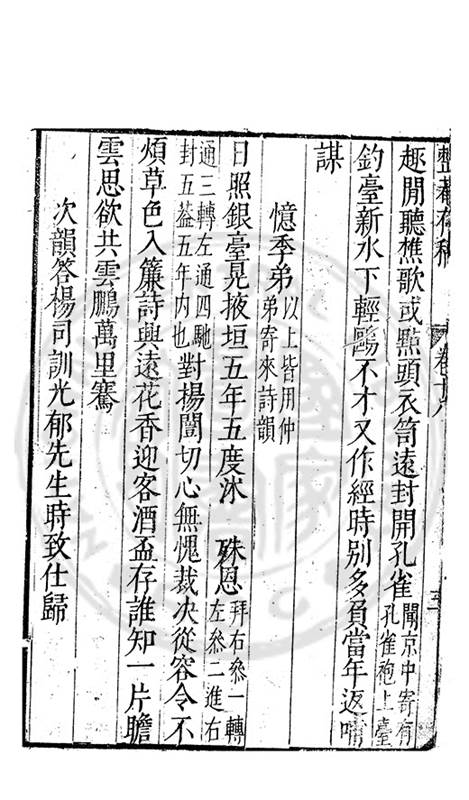 整菴存稿
卷十八
趣閒聽樵歌或點頭衣笥遠封開孔雀聞京中寄有孔雀袍上臺
釣臺新水下輕鷗不才又作經時别多負當年返嘴
謀
憶季弟以上皆用仲弟寄來詩韻
日照銀臺晃掖垣五年五度沐 殊恩拜右叅一轉左叅二進右
通三轉左通四馳封五葢五年内也對揚閶切心無愧裁决從容令不
煩草色入簾詩與遠花香迎客酒盃存誰知一片瞻
雲思欲共雲鵬萬里騫
次韻答楊司訓光郁先生時致仕歸